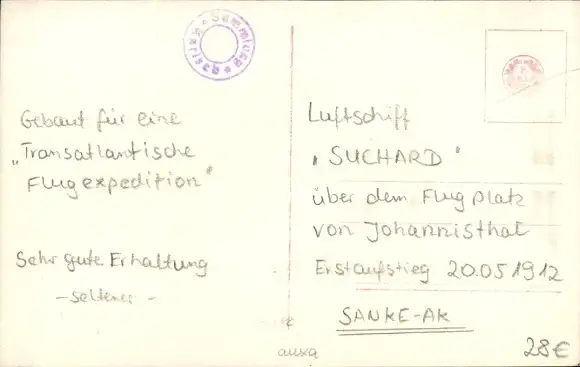 Sammlung
Gebaut für eine
"Transatlantische
Flugexpedition"
Sehr gute Erhaltung
- seltener -
Luftschiff
"SUCHARD"
über dem Flugplatz
von Johannisthal
Erstaufstieg 20.05.1912
SANKE-AK
auxa
28€